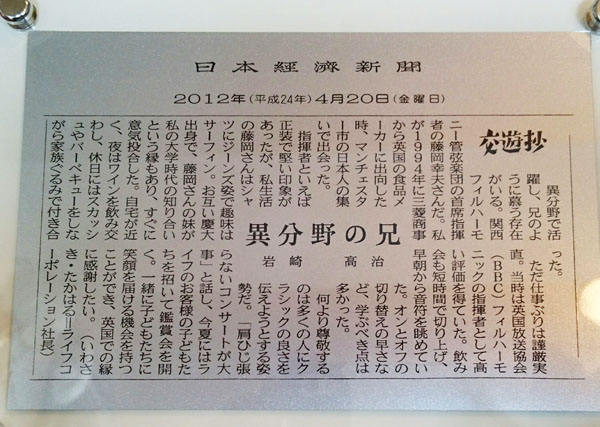 日本經濟新聞
2012年(平成24年)4月20日(金曜日)
交遊抄
異分野の兄
岩崎高治
異分野で活
躍し、兄のよ
うに慕う存在
がいる。関西
フィルハーモ
ニー管弦楽団の首席指揮
者の藤岡幸夫さんだ。私
が1994年に三菱商事
から英国の食品メ
ーカーに出向した
時、マンチェスタ
ー市の日本人の集
いで出会った。
指揮者といえば
正装で堅い印象が
あったが、私生活
の藤岡さんはシャ
ツにジーンズ姿で趣味は
サーフィン。お互い慶大
出身で、藤岡さんの妹が
私の大学時代の知り合い
という縁もあり、すぐに
意気投合した。自宅が近
く、夜はワインを飲み交
わし、休日にはスカッシ
ュやバーベキューをしな
がら家族ぐるみで付き合
った。
ただ仕事ぶりは謹厳実
直。当時は英国放送協会
（BBC）フィルハーモ
ニックの指揮者として高
い評価を得ていた。飲み
会も短時間で切り上げ、
早朝から音符を眺めてい
た。オンとオフの
切り替えの早さな
ど、学ぶべき点は
多かった。
何より尊敬する
のは多くの人にク
ラシックの良さを
伝えようとする姿
勢だ。「肩ひじ張
らないコンサートが大
事」と話し、今夏にはラ
イフのお客様の子どもた
ちを招いて鑑賞会を開
く。一緒に子どもたちに
笑顔を届ける機会を持つ
ことができ、英国での縁
に感謝したい。（いわさ
き・たかはる＝ライフコ
ーポレーション社長）